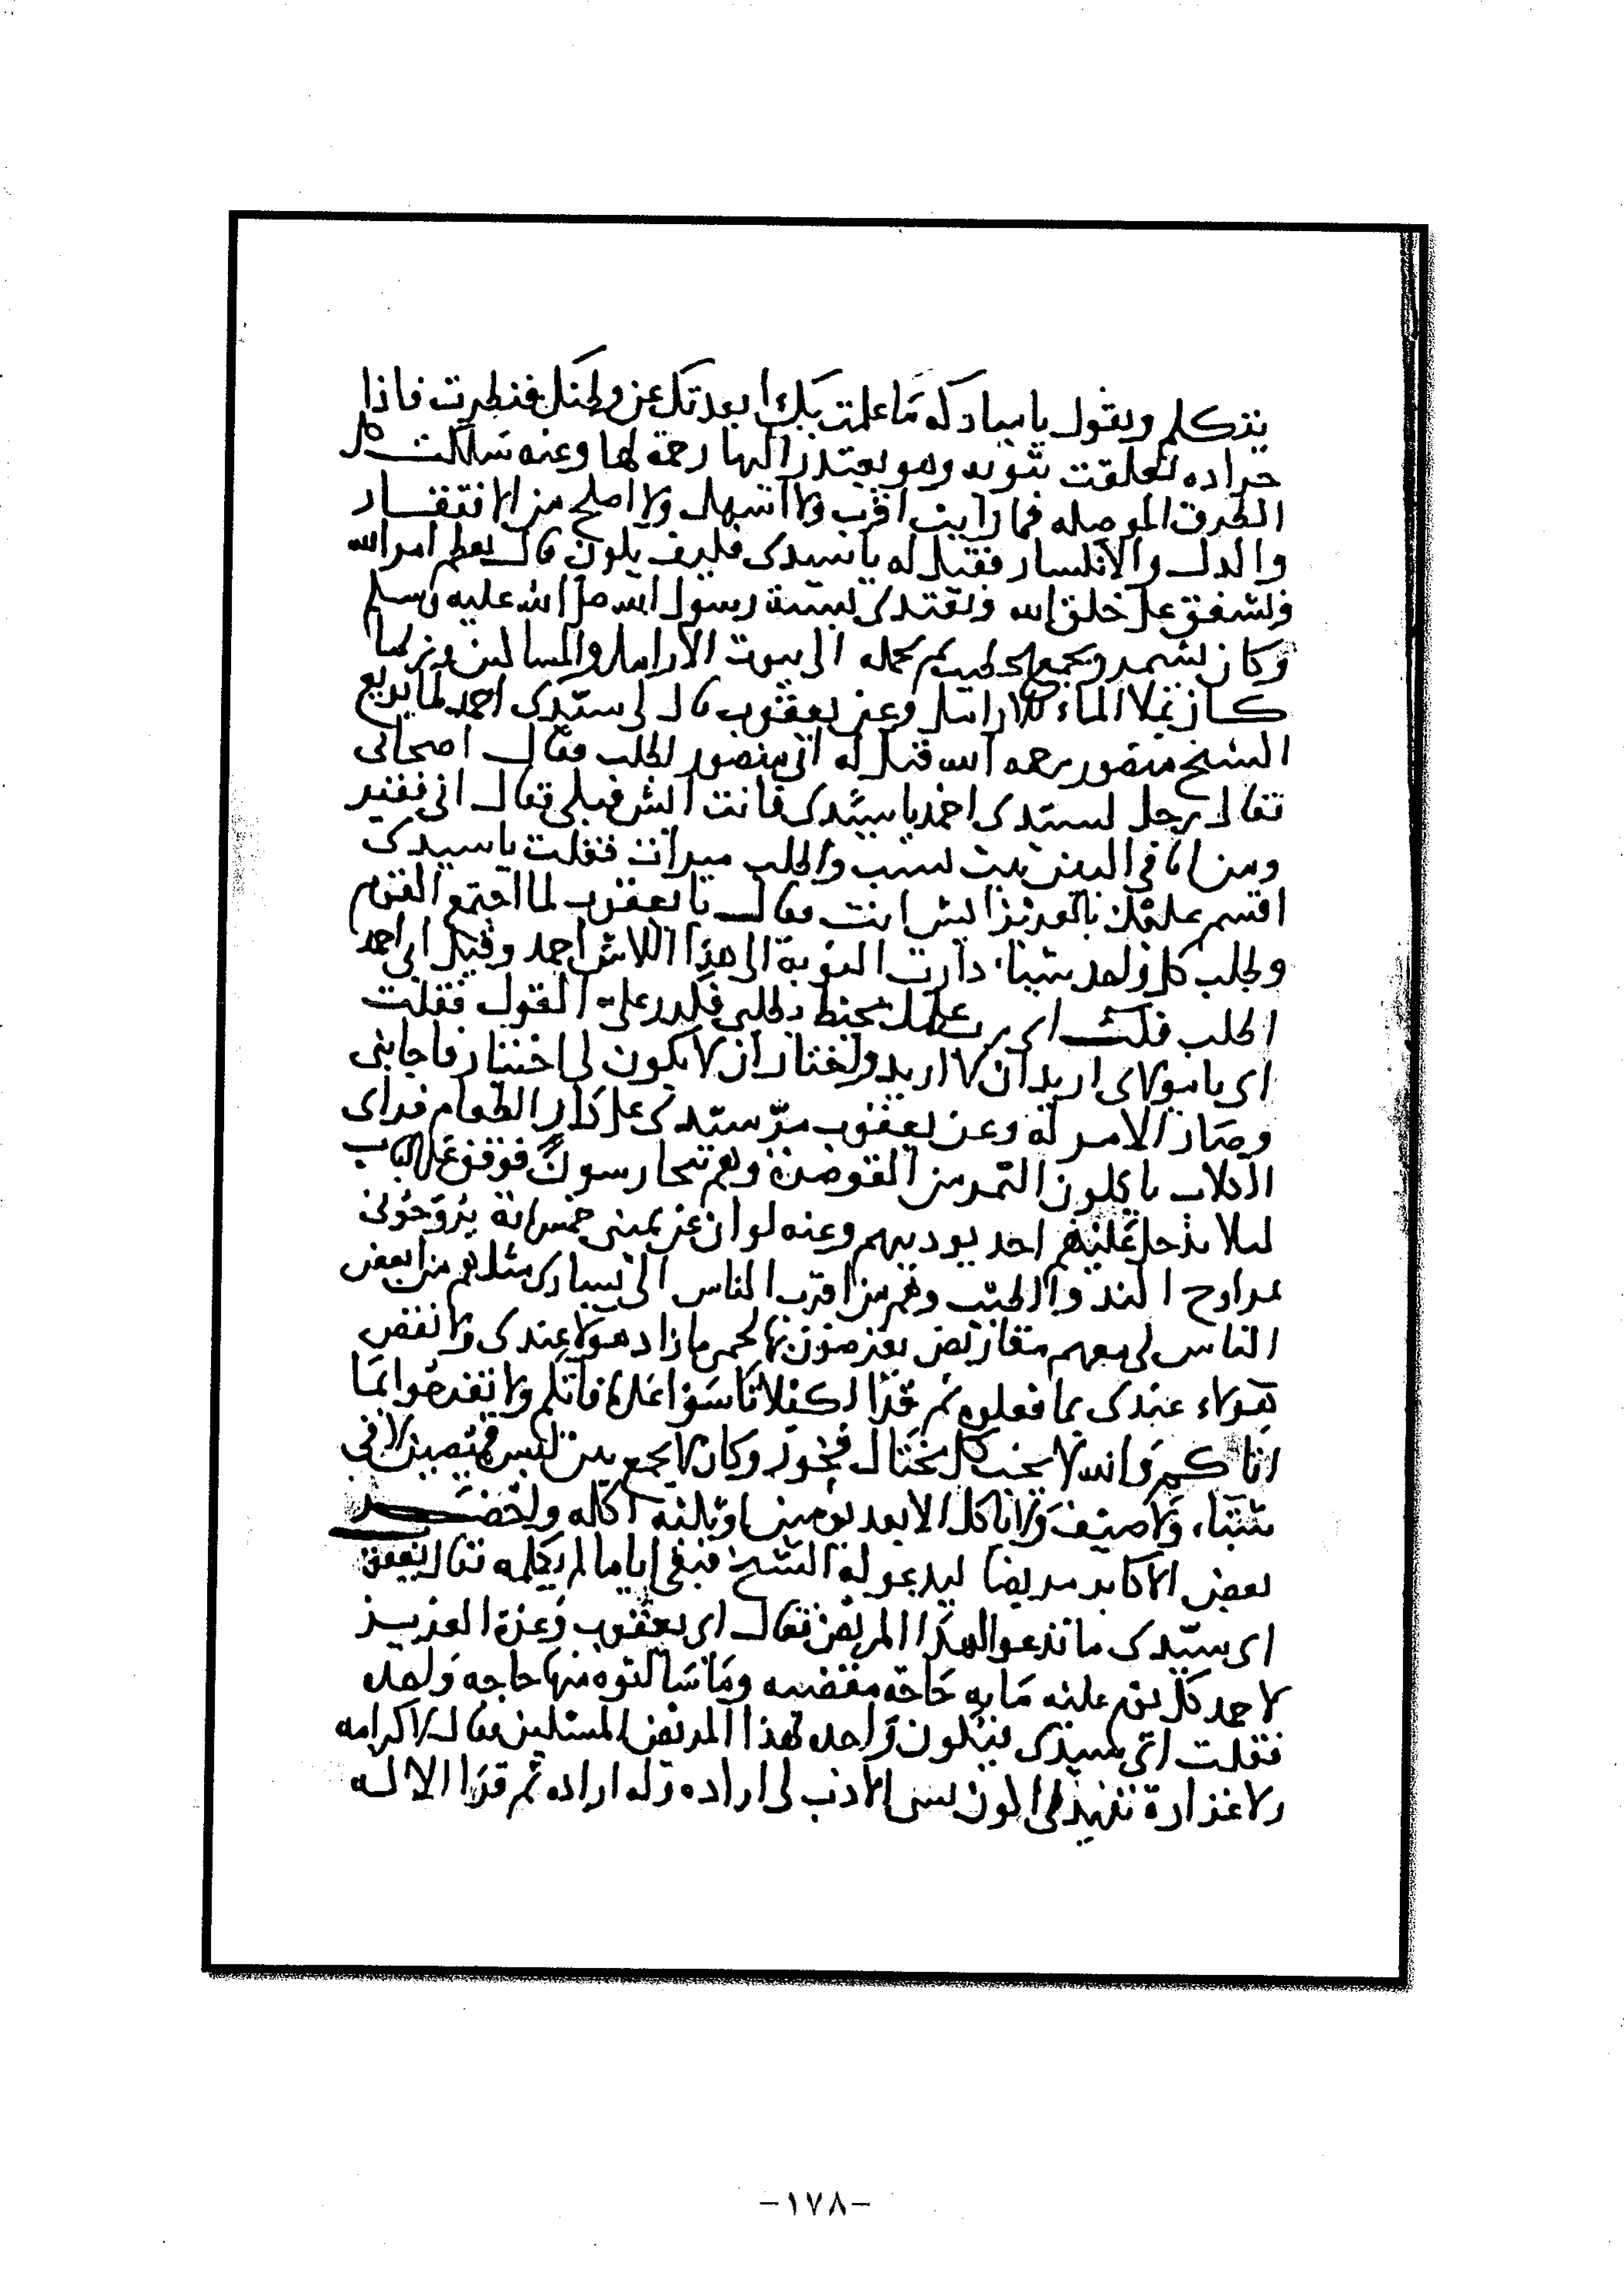 يتكلم ويقول يا مباركة ما علمت بك ابعدتك عن وطنك فنظرت فاذا
جراده تعلقت بثوبه وهو يعتذر اليها رحمة لها وعنه سلكت كل
الطرق الموصله فما رايت اقرب ولا اسهل ولا اصلح من الافتقار
والذل والانكسار فقيل له يا سيدى فكيف يكون قال تعظم امر الله
وتشفق على خلق الله وتقتدى بسنة رسول الله صلى الله عليه وسلم
وكان يجمع الحطب ثم يحمله الى بيوت الارامل والمساكين وربما
كان يملا الماء للارامل وعن يعقوب قال لى سيدى احمد لما بويع
الشيخ منصور رحمه الله قيل له اى منصور اطلب فقال اصحابى
فقال رجل لسيدى احمد يا سيدى فانت ايش فبكى فقال انى فقير
ومن انا فى البين ثبت نسب واطلب ميراث فقلت يا سيدى
اقسم عليك بالعزيز ايش انت فقال يا يعقوب لما اجتمع القوم
وطلب كل واحد شيئا دارت النوبة الى هذا اللاش احمد وقيل اى احمد
اطلب قلت اى رب علمك محيط بطلبى فكرر على القول فقلت
اى مولاى اريد ان لا اريد واختار ان لا يكون لى اختيار فاجابنى
وصار الامر له وعن يعقوب مر سيدى على دار الطعام فراى
الكلاب ياكلون التمر من القوصرة وهم يتحارشون فوقف على الباب
ليلا يدخل عليهم احد يوذيهم وعنه لو ان عن يمينى خمس ماية يروحونى
بمراوح الند والطيب وهم من اقرب الناس الى ويسارى مثلهم من ابغض
الناس لى معهم مقاريض يقرضون بها لحمى ما زاد هولا عندى ولا نقص
هولاء عندى بما فعلوه ثم قرا لكيلا تاسوا على ما فاتكم ولا تفرحوا بما
اتاكم والله لا يحب كل مختال فخور وكان لا يجمع بين لبس قميصين لا فى
شتاء ولا صيف ولا ياكل الا بعد يومين او ثلثة اكله واحضر
بعض الاكابر مريضا ليدعو له الشيخ فبقى اياما لم يكلمه فقال يعقوب
اى سيدى ما تدعو لهذا المريض فقال اى يعقوب وعزة العزيز
لاحمد كل يوم عليه ماية حاجة مقضيه وما سالته منها حاجه واحده
فقلت اى سيدى فتكون واحده لهذا المريض المسكين فقال لا كرامه
ولا عزازة تريدنى اكون سى الادب لى اراده وله اراده ثم قرا الا له
-١٧٨-